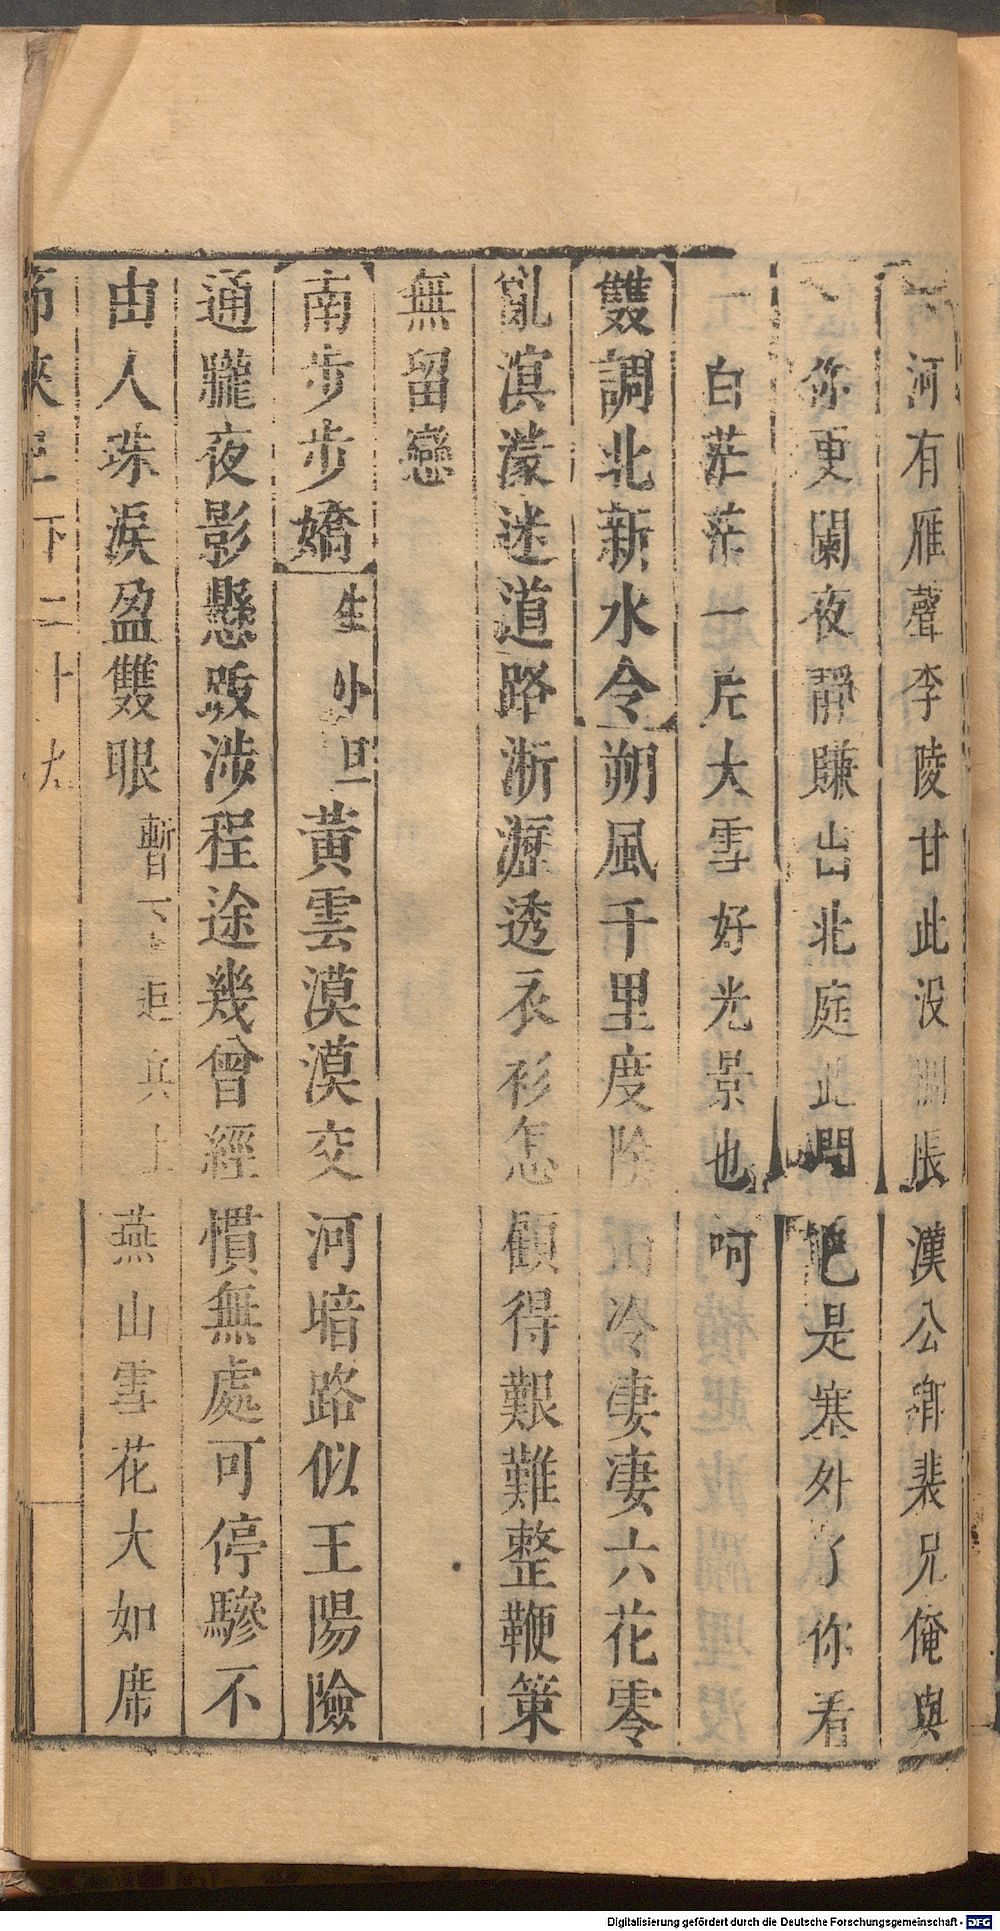 河有雁聲李陵甘此没𣸣脹漢公卿裴兄俺與
你更闌夜靜賺出北庭此間已是塞外了你看
白茫茫一片大雪好光景也呵
雙調北新水令朔風千里度陰冷凄凄六花零
亂溟濛迷道路淅瀝透衣衫怎顧得艱難整鞭策
無留戀
南步步嬌生小旦黃雲漠漠交河暗路似王陽險
通朧夜影懸跋涉程途幾曾經慣無處可停驂不
由人珠淚盈雙眼暫下追兵上燕山雪花大如席
下二十九
Digitalisierung gefördert durch die Deutsche Forschungsgemeinschaft - DFG